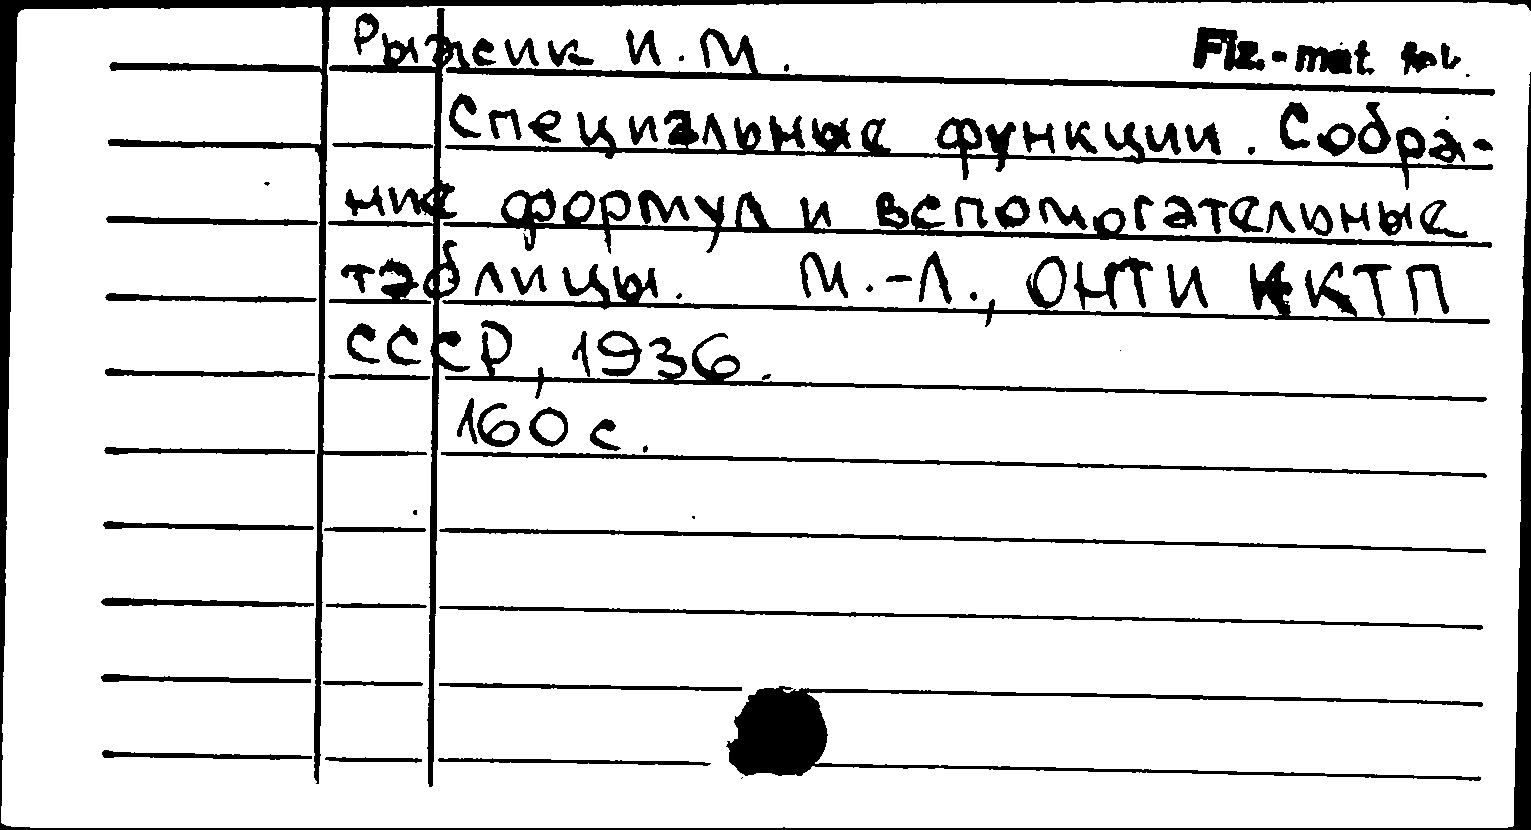 Рыжик И.М. Fiz.-mat.
Специальные функции. Собра-
ние формул и вспомогательные
таблицы. М.-Л., ОНТИ НКТП
СССР, 1936.
160 с.